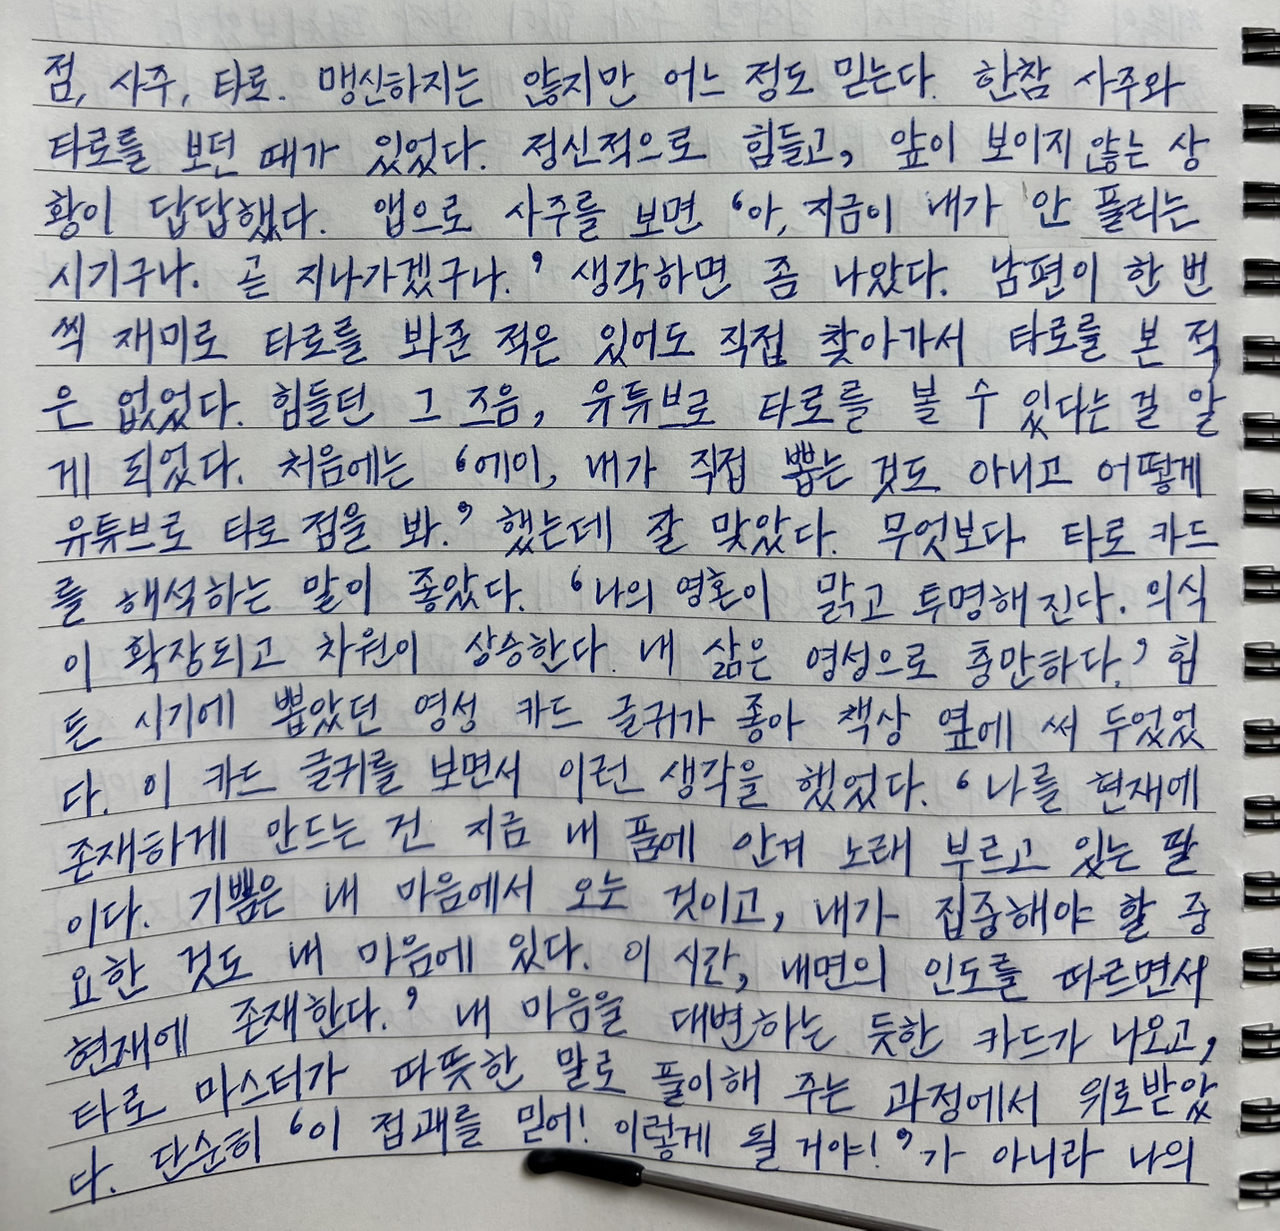 점, 사주, 타로. 맹신하지는 않지만 어느 정도 믿는다. 한참 사주와
타로를 보던 때가 있었다. 정신적으로 힘들고, 앞이 보이지 않는 상
황이 답답했다. 앱으로 사주를 보면 ‘아, 지금이 내가 안 풀리는
시기구나. 곧 지나가겠구나.’ 생각하면 좀 나았다. 남편이 한 번
씩 재미로 타로를 봐준 적은 있어도 직접 찾아가서 타로를 본 적
은 없었다. 힘들던 그 즈음, 유튜브로 타로를 볼 수 있다는 걸 알
게 되었다. 처음에는 ‘에이, 내가 직접 뽑는 것도 아니고 어떻게
유튜브로 타로 점을 봐.’ 했는데 잘 맞았다. 무엇보다 타로 카드
를 해석하는 말이 좋았다. ‘나의 영혼이 맑고 투명해진다. 의식
이 확장되고 차원이 상승한다. 내 삶은 영성으로 충만하다.’ 힘
든 시기에 뽑았던 영성 카드 글귀가 좋아 책상 옆에 써 두었었
다. 이 카드 글귀를 보면서 이런 생각을 했었다. ‘나를 현재에
존재하게 만드는 건 지금 내 품에 안겨 노래 부르고 있는 딸
이다. 기쁨은 내 마음에서 오는 것이고, 내가 집중해야 할 중
요한 것도 내 마음에 있다. 이 시간, 내면의 인도를 따르면서
현재에 존재한다.’ 내 마음을 대변하는 듯한 카드가 나오고,
타로 마스터가 따뜻한 말로 풀이해 주는 과정에서 위로받았
다. 단순히 ‘이 점괘를 믿어! 이렇게 될 거야!’가 아니라 나의